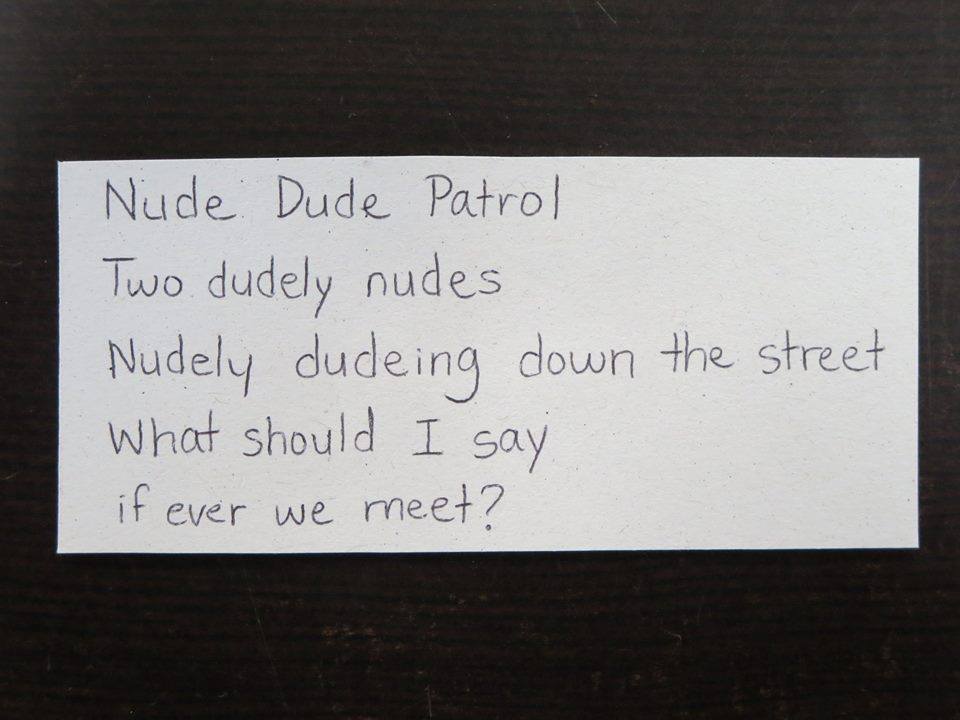 Nude Dude Patrol
Two dudely nudes
Nudely dudeing down the street
What should I say
if ever we meet?